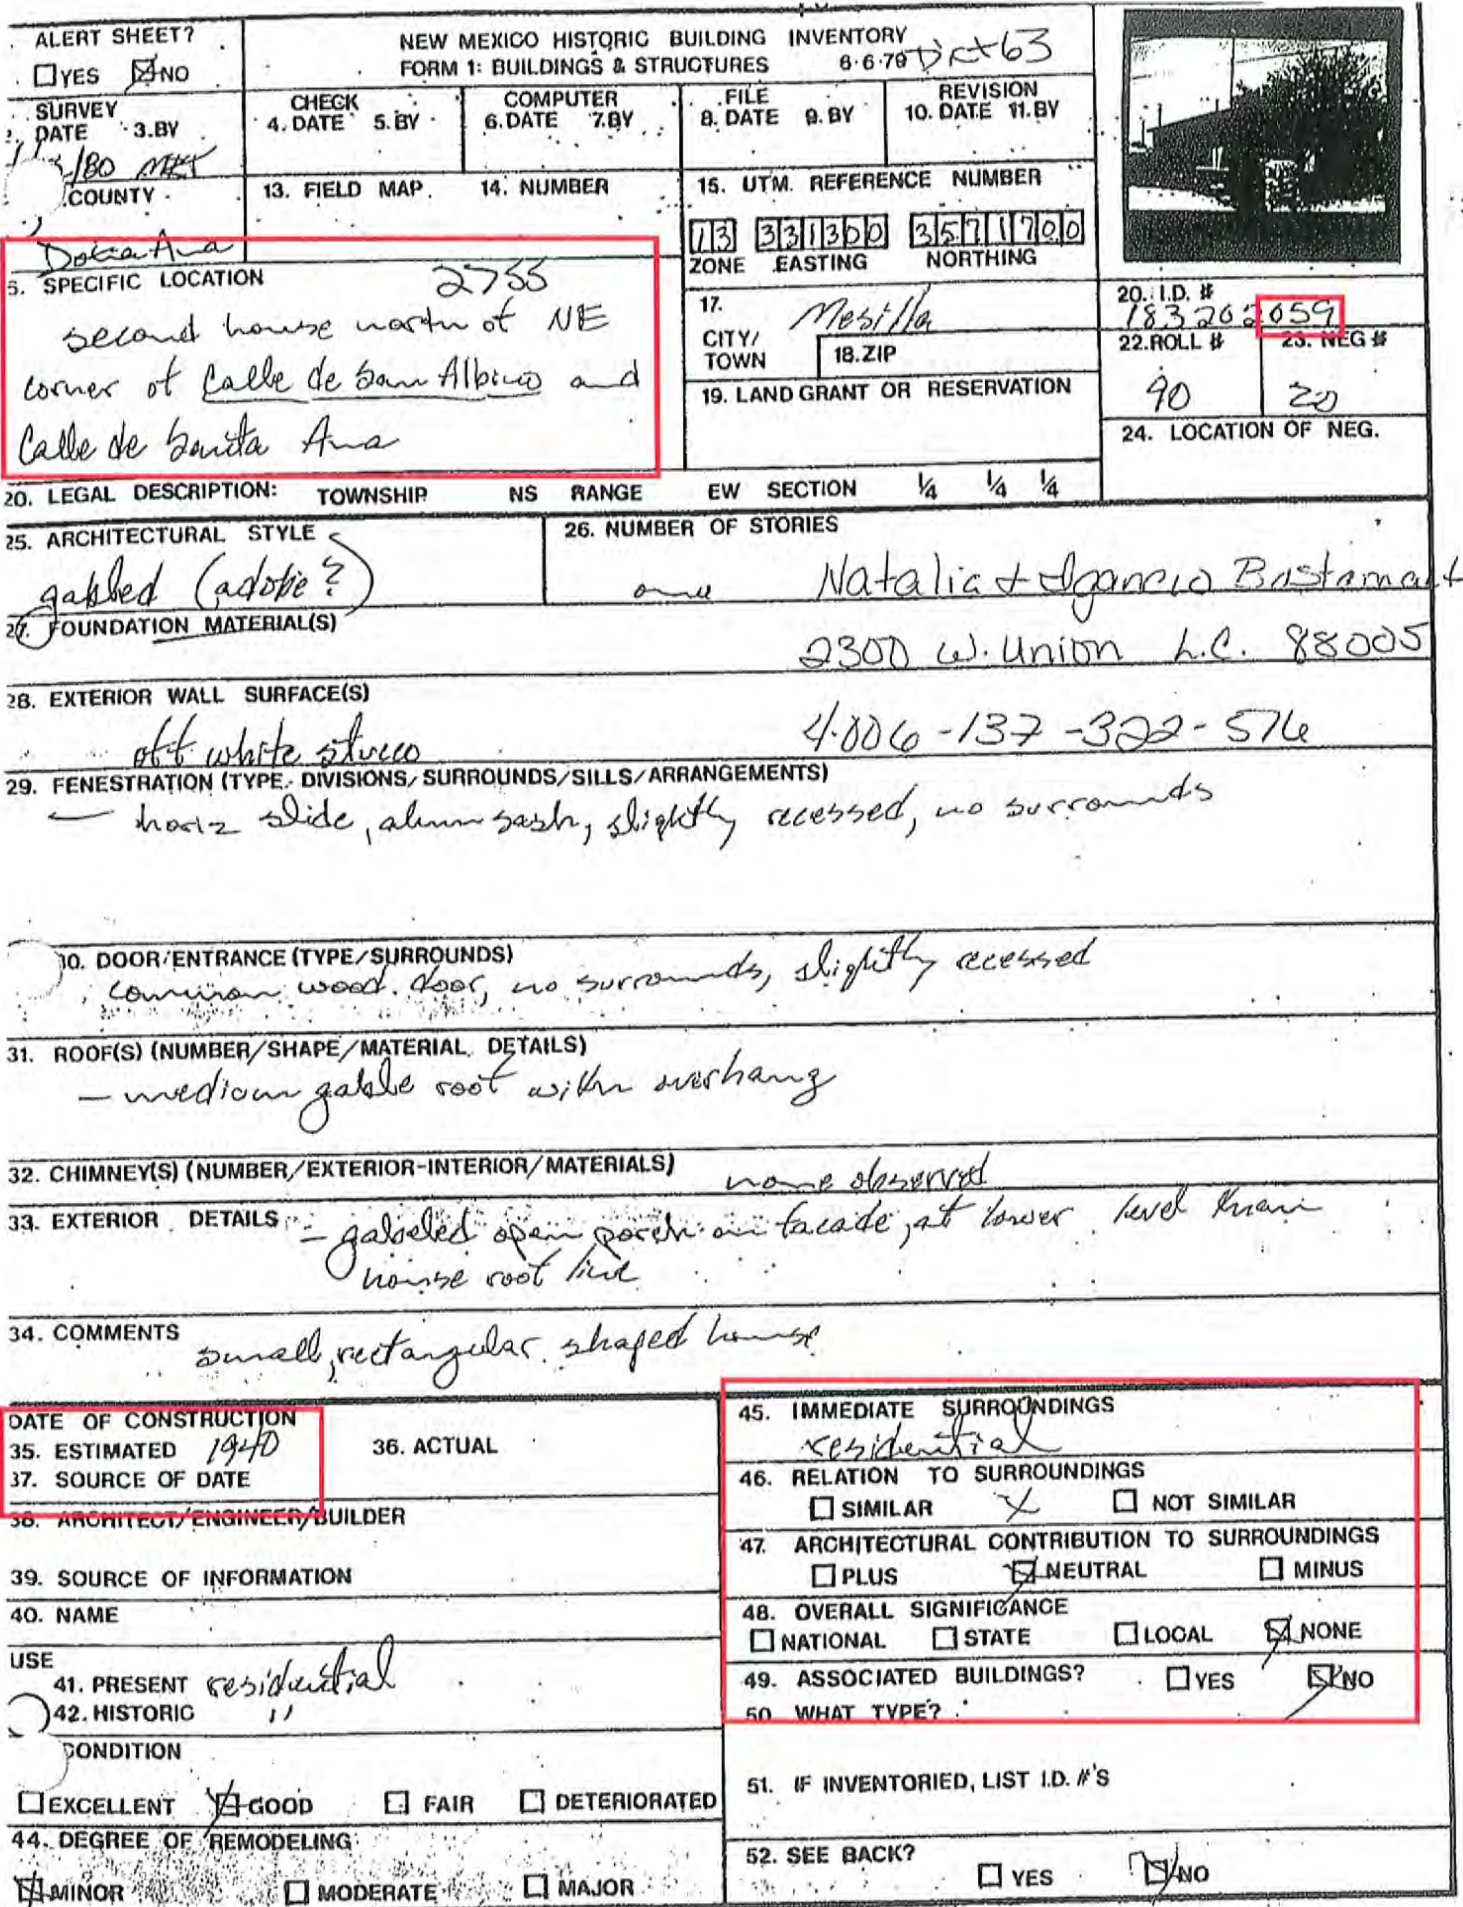 ALERT SHEET?
YES NO
NEW MEXICO HISTORIC BUILDING INVENTORY
FORM 1: BUILDINGS & STRUCTURES 6·6·79 Dict 63
SURVEY
DATE 3.BY
/80 MKT
CHECK
4. DATE 5. BY
COMPUTER
6. DATE 7.BY
FILE
8. DATE 9. BY
REVISION
10. DATE 11. BY
COUNTY
Doña Ana
13. FIELD MAP. 14. NUMBER
15. UTM. REFERENCE NUMBER
13 331300 3571700
ZONE EASTING NORTHING
6. SPECIFIC LOCATION 2755
second house north of NE
corner of Calle de San Albino and
Calle de Santa Ana
17. Mesilla
CITY/
TOWN 18.ZIP
19. LAND GRANT OR RESERVATION
20. I.D. #
183202059
22.ROLL # 23. NEG #
90 20
24. LOCATION OF NEG.
20. LEGAL DESCRIPTION: TOWNSHIP NS RANGE EW SECTION ¼ ¼ ¼
25. ARCHITECTURAL STYLE
gabled (adobe?)
26. NUMBER OF STORIES
one Natalia + Igancio Bustamant
27. FOUNDATION MATERIAL(S)
2300 W. Union L.C. 88005
28. EXTERIOR WALL SURFACE(S)
off white stucco 4-006-137-322-576
29. FENESTRATION (TYPE, DIVISIONS/SURROUNDS/SILLS/ARRANGEMENTS)
— horiz slide, alum sash, slightly recessed, no surrounds
30. DOOR/ENTRANCE (TYPE/SURROUNDS)
common wood door, no surrounds, slightly recessed
31. ROOF(S) (NUMBER/SHAPE/MATERIAL DETAILS)
— medium gable roof with overhang
32. CHIMNEY(S) (NUMBER/EXTERIOR-INTERIOR/MATERIALS) none observed
33. EXTERIOR DETAILS – gabled open porch on facade, at lower level than
house roof line
34. COMMENTS small, rectangular shaped house
DATE OF CONSTRUCTION
35. ESTIMATED 1940 36. ACTUAL
37. SOURCE OF DATE
38. ARCHITECT/ENGINEER/BUILDER
39. SOURCE OF INFORMATION
40. NAME
USE
41. PRESENT residential
42. HISTORIC "
CONDITION
EXCELLENT GOOD FAIR DETERIORATED
44. DEGREE OF REMODELING
MINOR MODERATE MAJOR
45. IMMEDIATE SURROUNDINGS
residential
46. RELATION TO SURROUNDINGS
SIMILAR X NOT SIMILAR
47. ARCHITECTURAL CONTRIBUTION TO SURROUNDINGS
PLUS NEUTRAL MINUS
48. OVERALL SIGNIFICANCE
NATIONAL STATE LOCAL NONE
49. ASSOCIATED BUILDINGS? YES NO
50. WHAT TYPE?
51. IF INVENTORIED, LIST I.D. #'S
52. SEE BACK?
YES NO